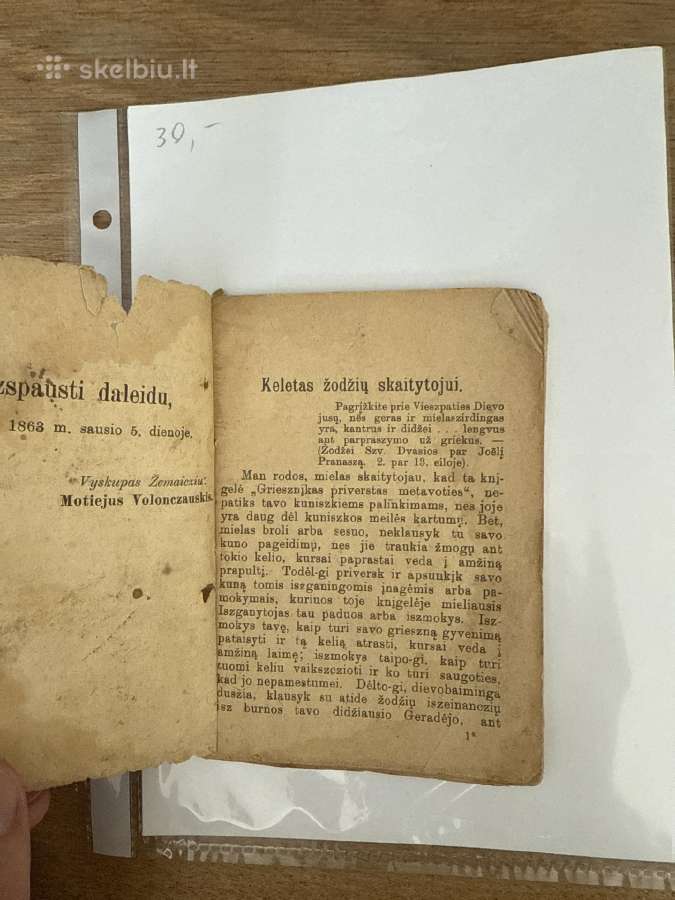 skelbiu.lt
30,-
zspausti daleidu,
1863 m. sausio 5. dienoje.
Vyskupas Žemaicziu:
Motiejus Volonczauskis.
Keletas žodžių skaitytojui.
Pagrįžkite prie Vieszpaties Dievo
jusų, nės geras ir mielaszirdingas
yra, kantrus ir didžei . . . lengvus
ant parpraszymo už griekus. —
(Žodžei Szv. Dvasios par Joėlį
Pranaszą. 2. par 13. eiloje).
Man rodos, mielas skaitytojau, kad ta knį-
gelė „Griesznįkas priverstas metavoties“, ne-
patiks tavo kuniszkiems palinkimams, nes joje
yra daug dėl kuniszkos meilės kartumų. Bet,
mielas broli arba sesuo, neklausyk tu savo
kuno pageidimų, nes jie traukia žmogų ant
tokio kelio, kursai paprastai veda į amžiną
prapultį. Todėl-gi priversk ir apsunkįk savo
kuną tomis iszganingomis įnagėmis arba pa-
mokymais, kurinos toje knįgelėje mieliausis
Iszganytojas tau paduos arba iszmokys. Isz-
mokys tavę, kaip turi savo grieszną gyvenimą
pataisyti ir tą kelią atrasti, kursai veda į
amžiną laimę; iszmokys taipo-gi, kaip turi
tuomi keliu vaikszczioti ir ko turi saugoties,
kad jo nepamestumei. Dėlto-gi, dievobaiminga
duszia, klausyk su atide žodžių iszeinanczių
isz burnos tavo didžiausio Geradėjo, ant
1*